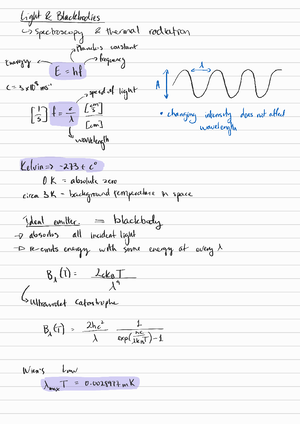 Light & Blackbodies
↳ Spectroscopy & thermal radiation
Planck's constant
Energy
frequency
E = hf
c = 3 × 10⁸ ms⁻¹
speed of light
[1/s] f = c/λ [cm/s]/[cm]
wavelength
λ
A
• changing intensity does not affect
wavelength
Kelvin => -273 + c°
0 K = absolute zero
circa 3K - background temperature in space
Ideal emitter = blackbody
→ absorbs all incident light
→ re-emits energy with some energy at every λ
B_λ(T) = 2ck_BT / λ⁴
↳ Ultraviolet catastrophe
B_λ(T) = 2hc² / λ · 1 / exp(hc/λk_BT)-1
Wien's Law
λ_max T = 0.0028977 m K